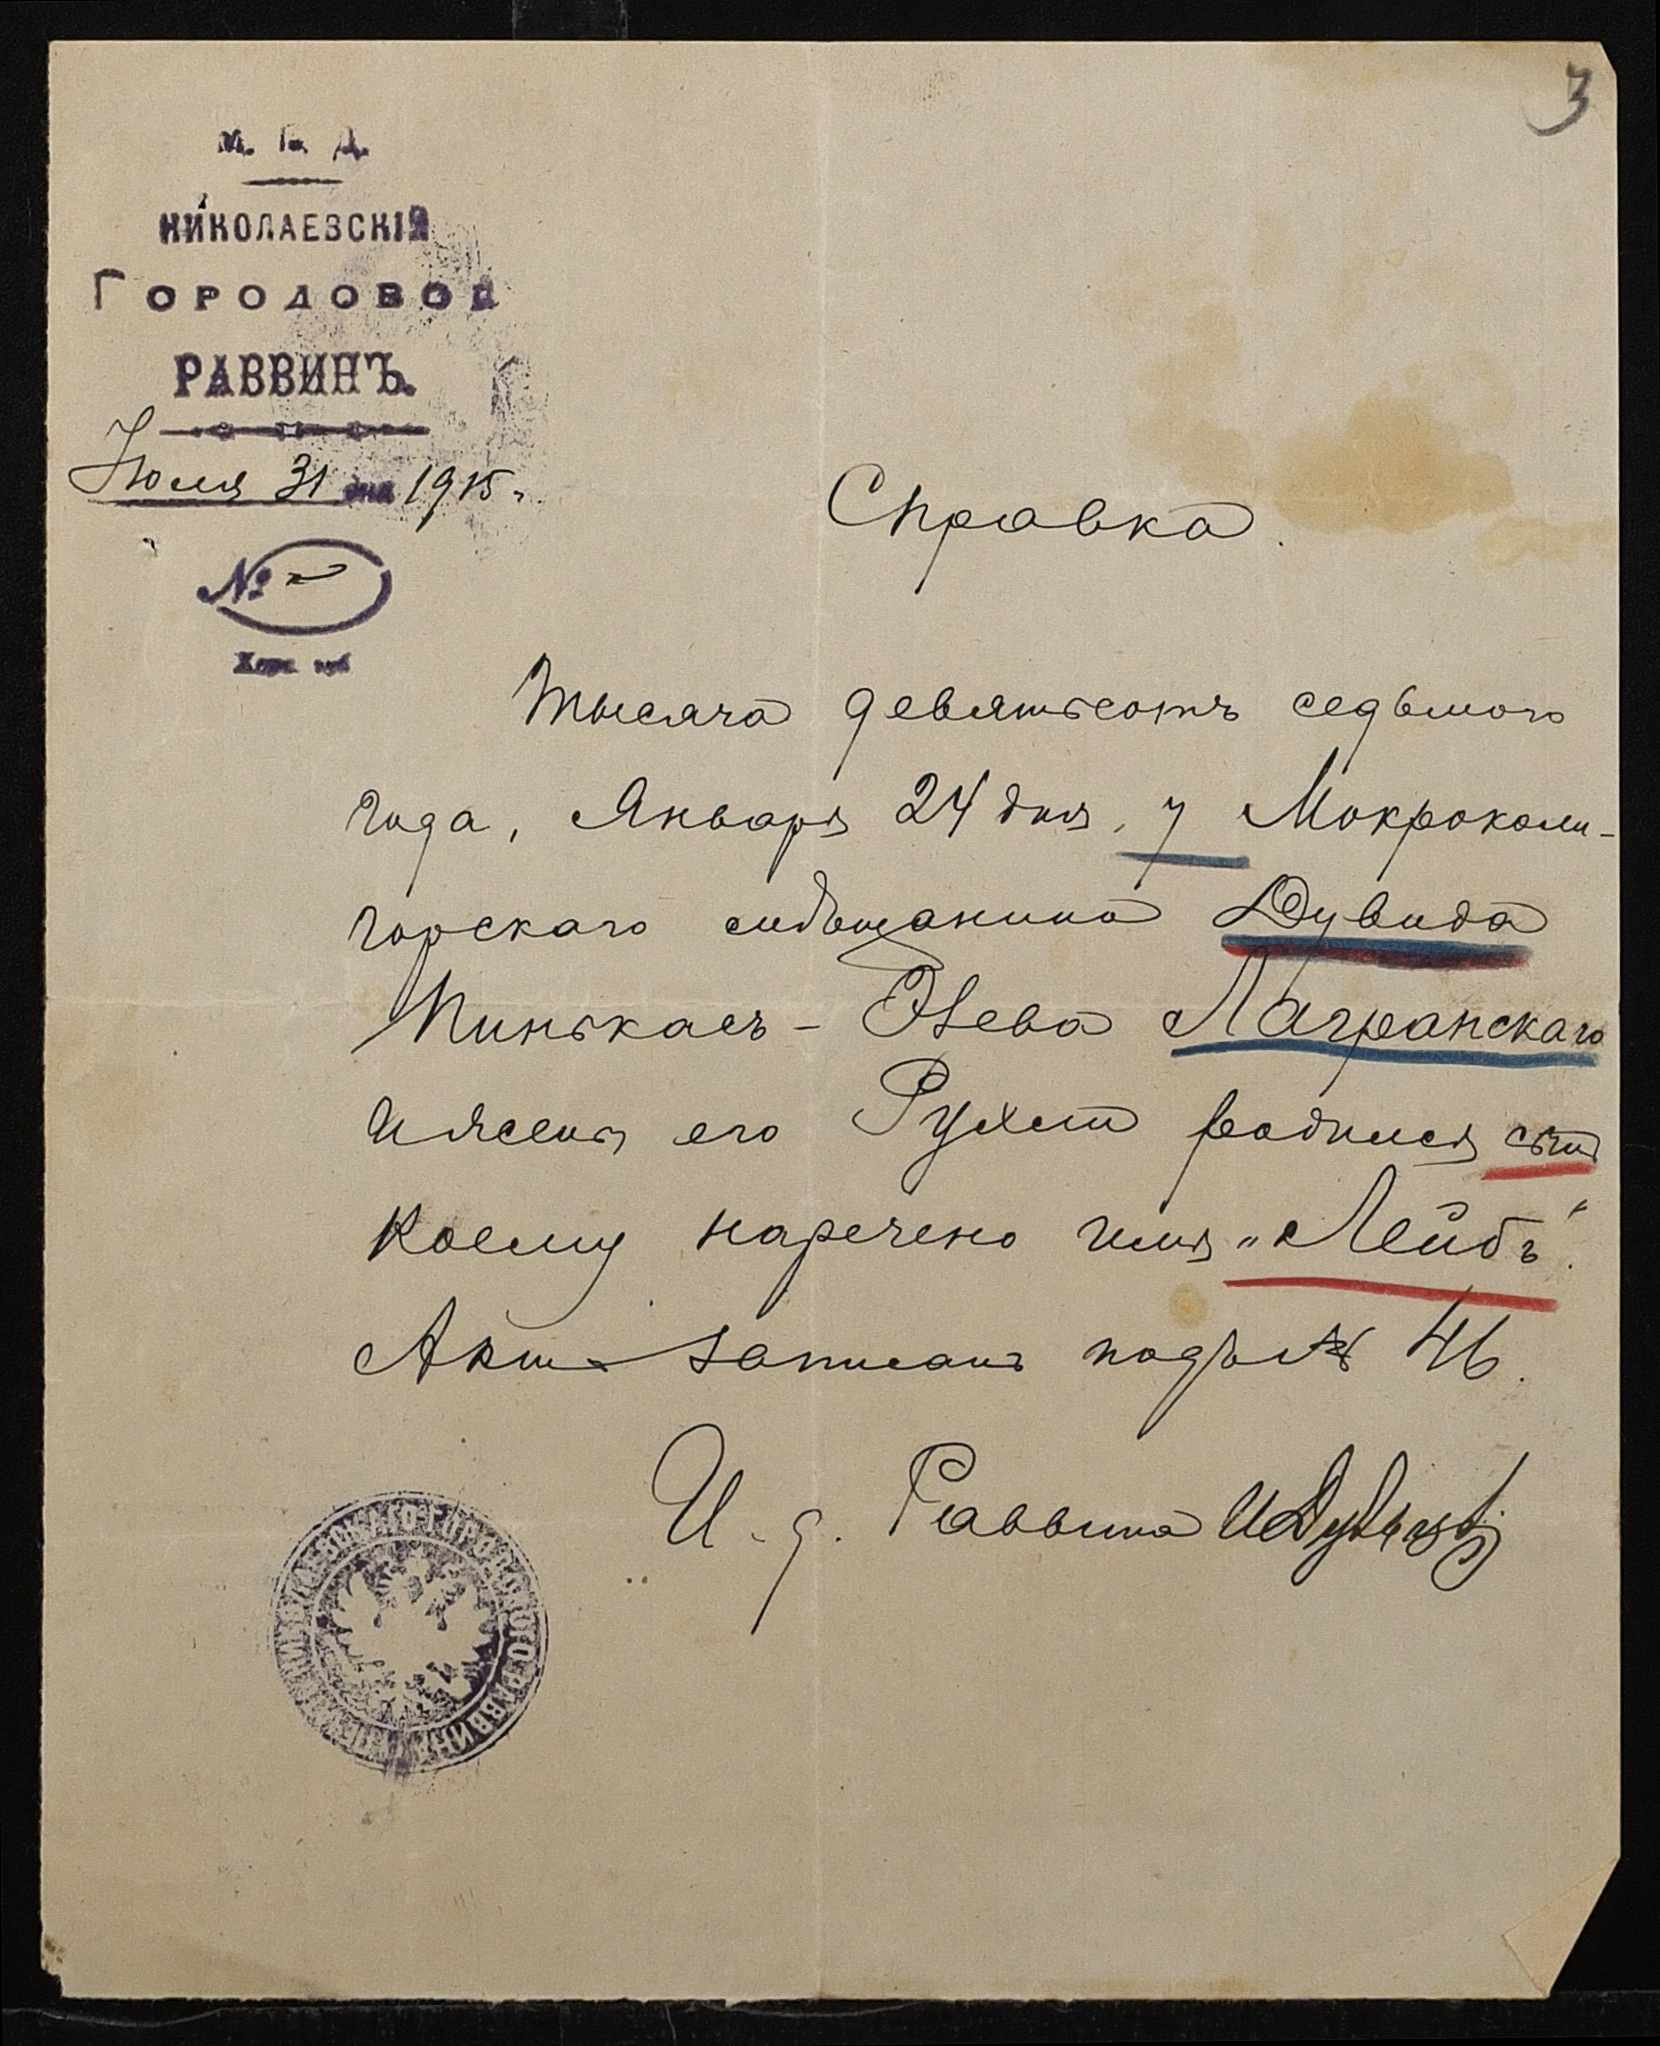 3
М. В. Д.
НИКОЛАЕВСКІЙ
ГОРОДОВОЙ
РАВВИНЪ.
Іюля 31 дня 1915 г.
№
Херс. губ.
Справка.
Тысяча девятьсотъ седьмого
года, Января 24 дня, у Мокрокали-
горскаго мѣщанина Дувида
Пинькасъ-Зева Лагранскаго
и жены его Рухли родился сынъ
коему наречено имя „Лейбъ“.
Актъ записанъ подъ № 46.
И. д. Раввина
НИКОЛАЕВСКАГО ГОРОДОВОГО РАВВИНА